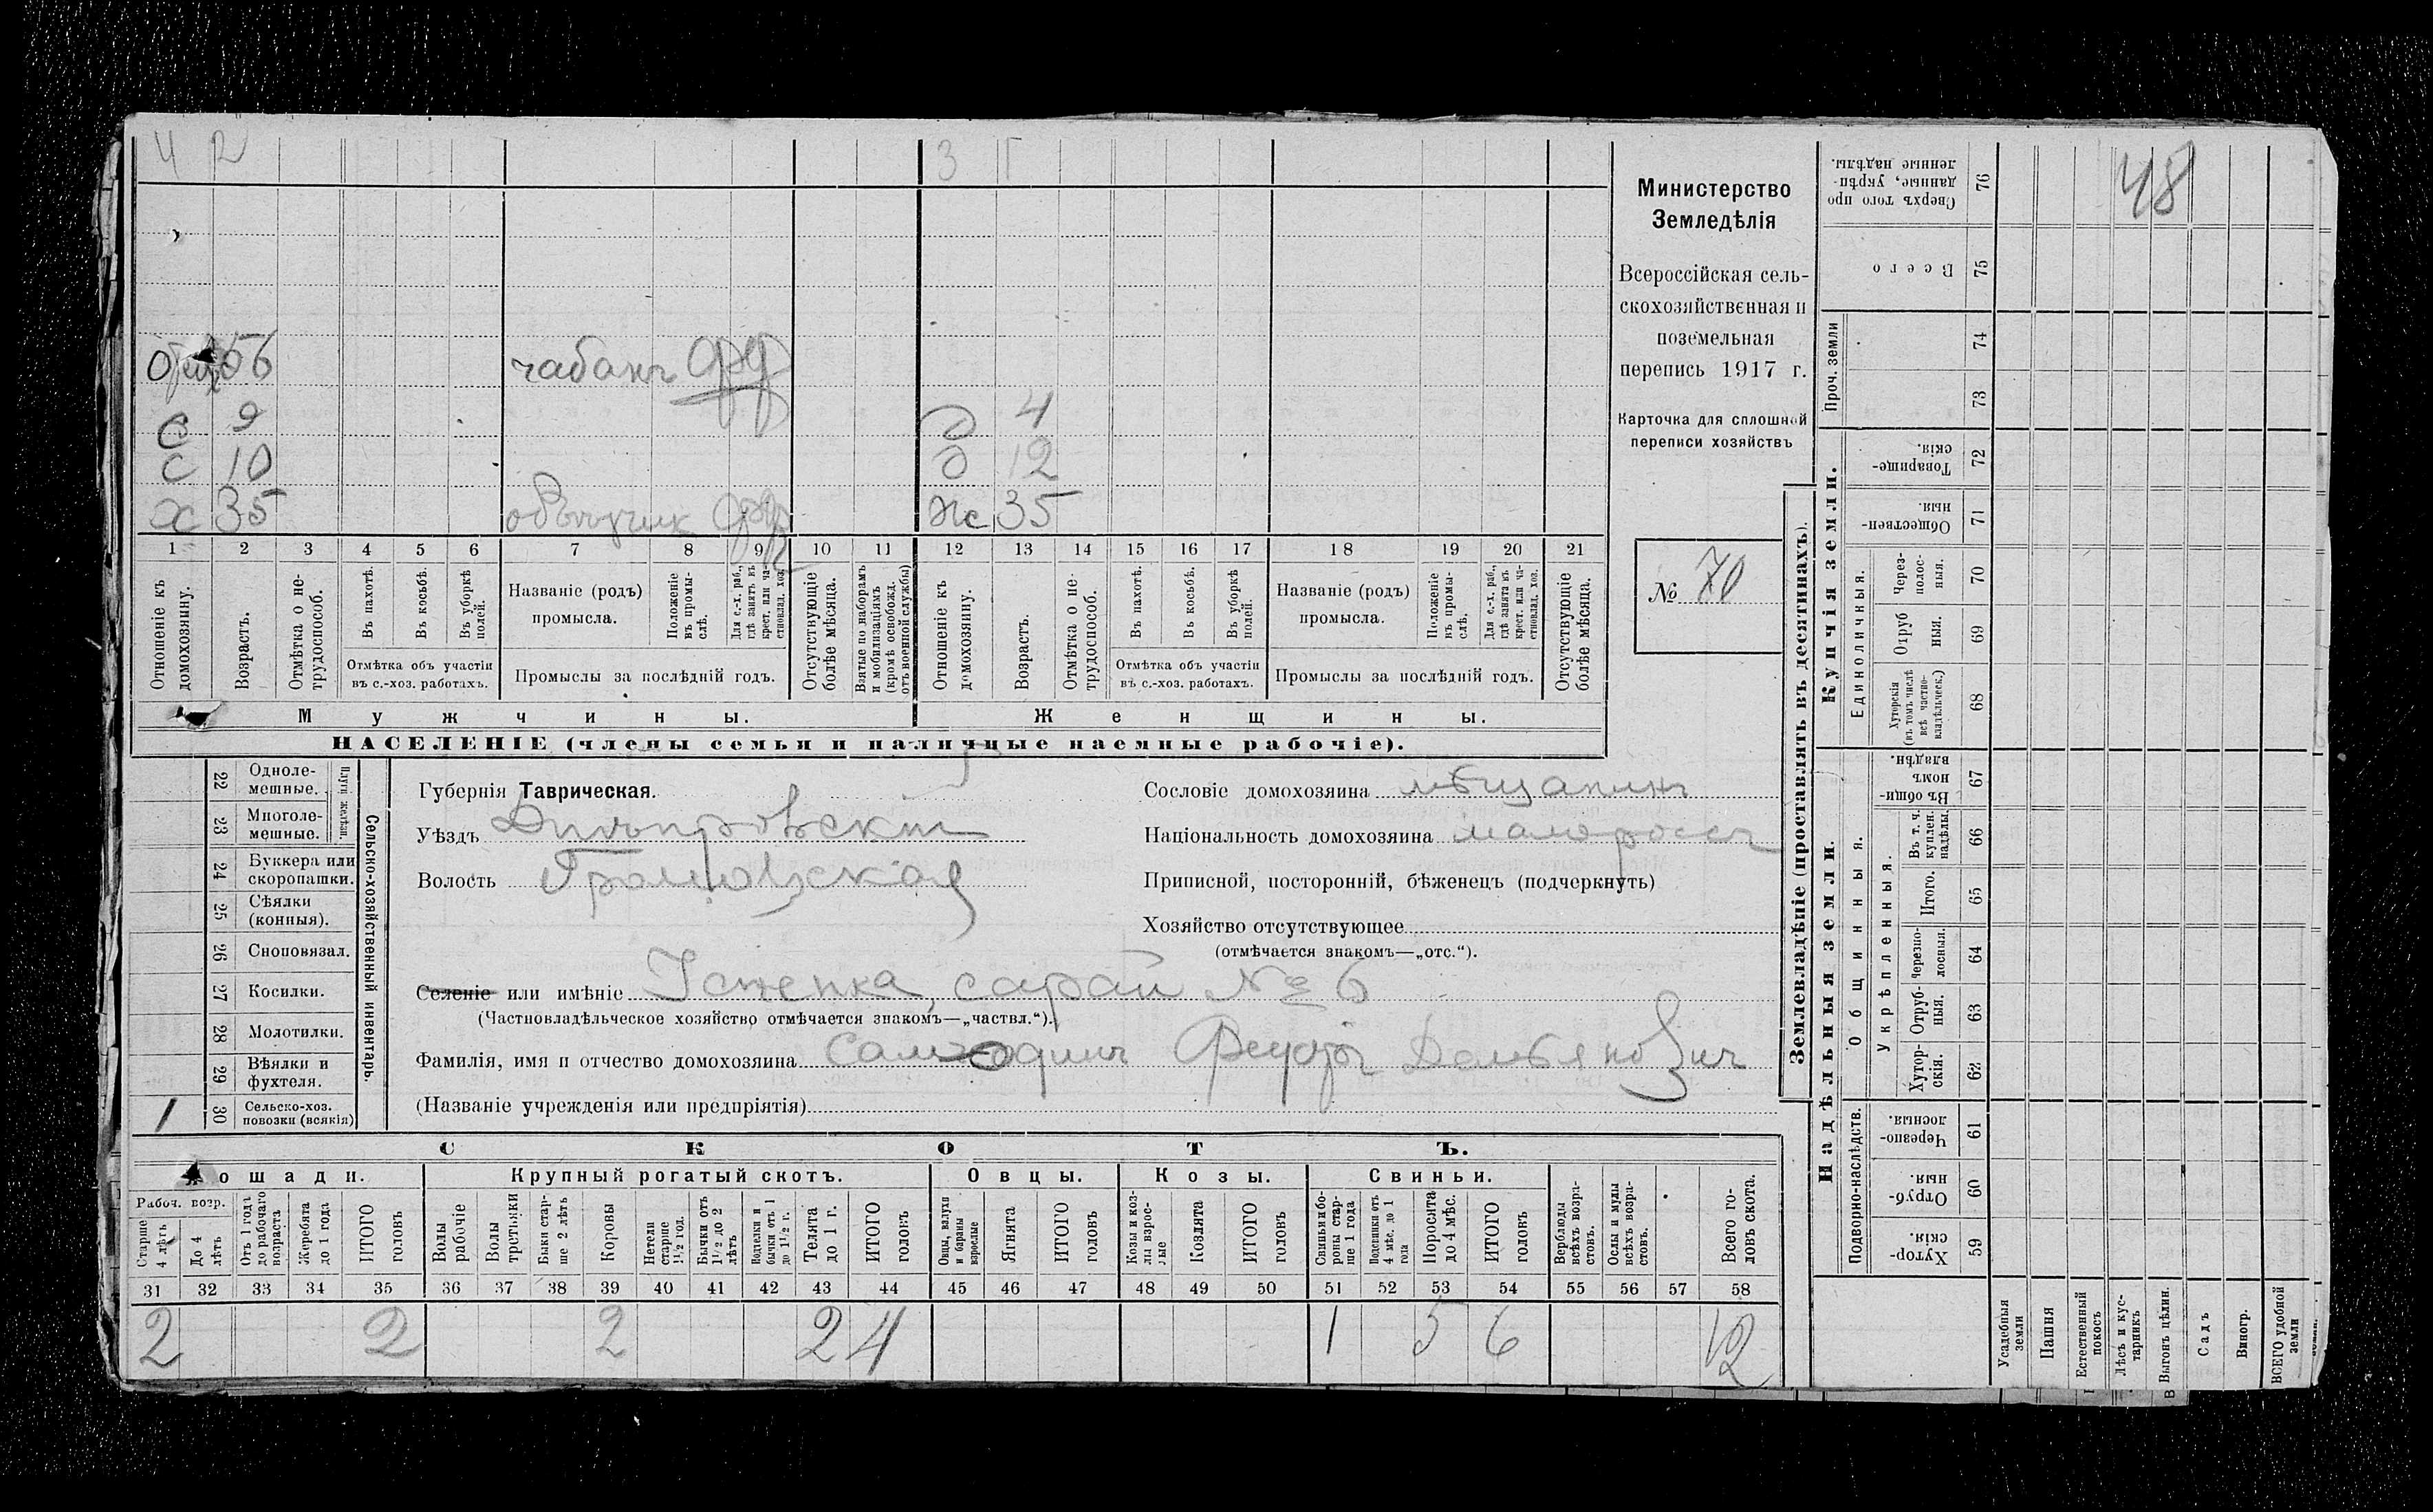 4 2 3 1
отец 56 чабанъ
с 9 д 4
с 10 д 12
х 35 объѣздчик ж 35
1 2 3 4 5 6 7 8 9 10 11 12 13 14 15 16 17 18 19 20 21
Отношеніе къ домохозяину.
Возрастъ.
Отмѣтка о не-трудоспособ.
Въ пахотѣ.
Въ косьбѣ.
Въ уборкѣ полей.
Отмѣтка объ участіи въ с.-хоз. работахъ.
Названіе (родъ) промысла.
Положеніе въ промы-слѣ.
Для с.-х. раб., гдѣ занятъ въ крест. или ча-стновлад. хоз.
Промыслы за послѣдній годъ.
Отсутствующіе болѣе мѣсяца.
Взятые по наборамъ и мобилизаціямъ (кромѣ освобожд. отъ военной службы)
Отношеніе къ домохозяину.
Возрастъ.
Отмѣтка о не-трудоспособ.
Въ пахотѣ.
Въ косьбѣ.
Въ уборкѣ полей.
Отмѣтка объ участіи въ с.-хоз. работахъ.
Названіе (родъ) промысла.
Положеніе въ промы-слѣ.
Для с.-х. раб., гдѣ занята въ крест. или ча-стновлад. хоз.
Промыслы за послѣдній годъ.
Отсутствующіе болѣе мѣсяца.
Мужчины. Женщины.
НАСЕЛЕНІЕ (члены семьи и наличные наемные рабочіе).
Министерство
Земледѣлія
Всероссійская сель-
скохозяйственная и
поземельная
перепись 1917 г.
Карточка для сплошной
переписи хозяйствъ
№ 70
Сельско-хозяйственный инвентарь.
Плуги желѣзн.
22 Одноле-мешные.
23 Многоле-мешные.
24 Буккера или скоропашки.
25 Сѣялки (конныя).
26 Сноповязал.
27 Косилки.
28 Молотилки.
29 Вѣялки и фухтеля.
1 30 Сельско-хоз. повозки (всякія)
Губернія Таврическая.
Уѣздъ Днѣпровскій
Волость Громовская
Селеніе или имѣніе Успенка, сарай № 6
(Частновладѣльческое хозяйство отмѣчается знакомъ—„частвл.“).
Фамилія, имя и отчество домохозяина Демьянович
(Названіе учрежденія или предпріятія)
Сословіе домохозяина мѣщанинъ
Національность домохозяина малороссъ
Приписной, посторонній, бѣженецъ (подчеркнуть)
Хозяйство отсутствующее
(отмѣчается знакомъ—„отс.“).
СКОТЪ.
Лошади. Крупный рогатый скотъ. Овцы. Козы. Свиньи.
Рабоч. возр.
Старше 4 лѣтъ
До 4 лѣтъ
Отъ 1 года до рабочаго возраста
Жеребята до 1 года
ИТОГО головъ
Волы рабочіе
Волы третьяки
Быки стар-ше 2 лѣтъ
Коровы
Нетели старше 1½ год.
Бычки отъ 1½ до 2 лѣтъ
Подтелки и бычки отъ 1 до 1½ г.
Телята до 1 г.
ИТОГО головъ
Овцы, валухи и бараны взрослые
Ягнята
ИТОГО головъ
Козы и коз-лы взрос-лые
Козлята
ИТОГО головъ
Свиньи и бо-ровы стар-ше 1 года
Подсвинки отъ 4 мѣс. до 1 года
Поросята до 4 мѣс.
ИТОГО головъ
Верблюды всѣхъ возра-стовъ.
Ослы и мулы всѣхъ возра-стовъ.
Всего го-ловъ скота.
31 32 33 34 35 36 37 38 39 40 41 42 43 44 45 46 47 48 49 50 51 52 53 54 55 56 57 58
2 2 2 2 4 1 5 6 12
Землевладѣніе (проставлять въ десятинахъ).
Купчія земли.
Надѣльныя земли.
48
76 Сверхъ того про-данные, укрѣп-ленные надѣлы.
75 Всего
Проч. земли
74
73
72 Товарище-скія.
71 Обществен-ныя.
Единоличныя.
70 Через-полос-ныя.
69 Отруб-ныя.
68 Хуторскія (въ томъ числѣ всѣ частно-владѣльческ.)
67 Въ общи-номъ владѣн.
Общинныя.
Укрѣпленныя.
66 Въ т. ч. куплен. надѣлы.
65 Итого.
64 Черезпо-лосныя.
63 Отруб-ныя.
62 Хутор-скія.
Подворно-наслѣдств.
61 Черезпо-лосныя.
60 Отруб-ныя.
59 Хутор-скія.
Усадебныя земли
Пашня
Естественный покосъ
Лѣсъ и кус-тарникъ
Выгонъ цѣлин.
Садъ
Виногр.
ВСЕГО удобной земли